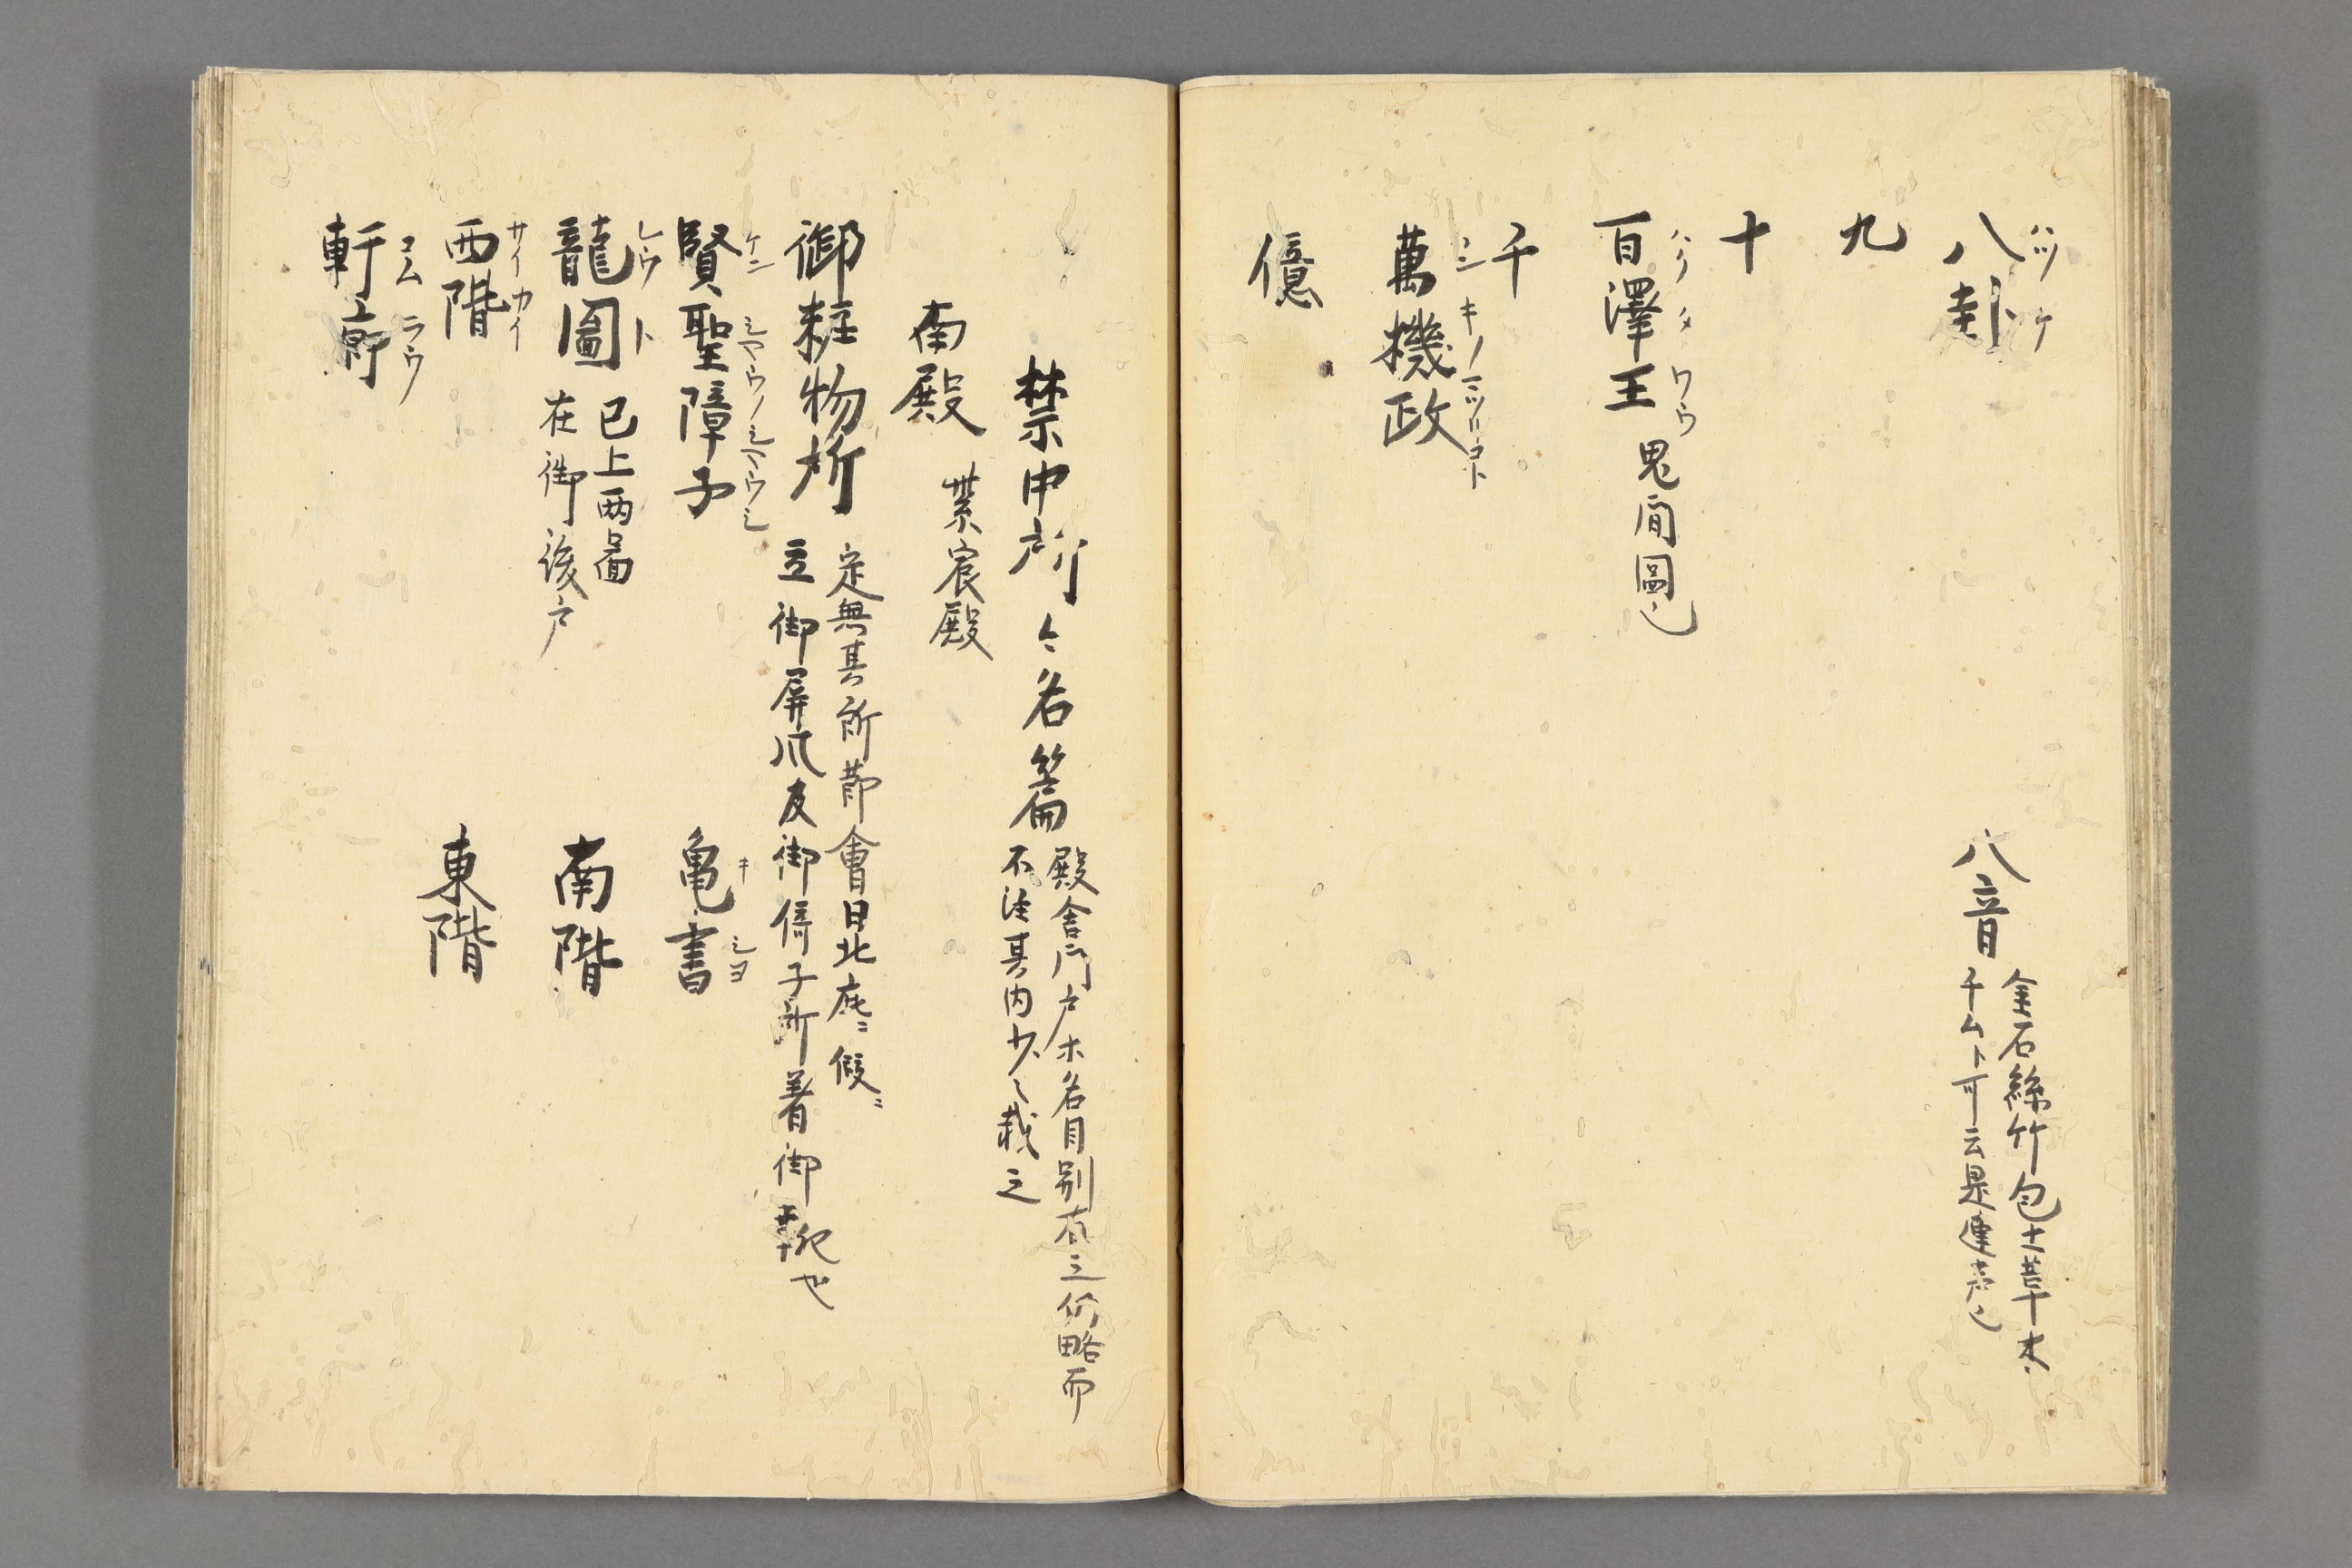 八卦 ハツケ
八音
金石絲竹匏土草木
千ムト可云是連声也
九
十
百澤王 ハクタクワウ 鬼間圖也
千
萬機政 ハンキノマツリコト
億
禁中所々名篇
殿舎門戸ホ名目別有之仍略而
不注其内少々載之
南殿 紫宸殿
御粧物所
定無其所節會日北庇ニ假ニ
立御屏风及御倚子所着御靴也
賢聖障子 ケンシヤウノシヤウシ
亀書 キシヨ
龍圖 レウト
已上两圖
在御後戸
南階
西階 サイカイ
東階
軒廊 コムラウ